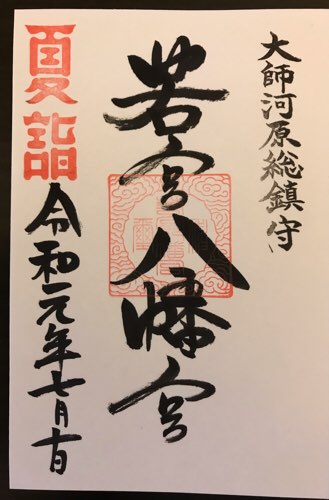 大師河原総鎮守
若宮八幡宮
夏詣
令和元年七月十日